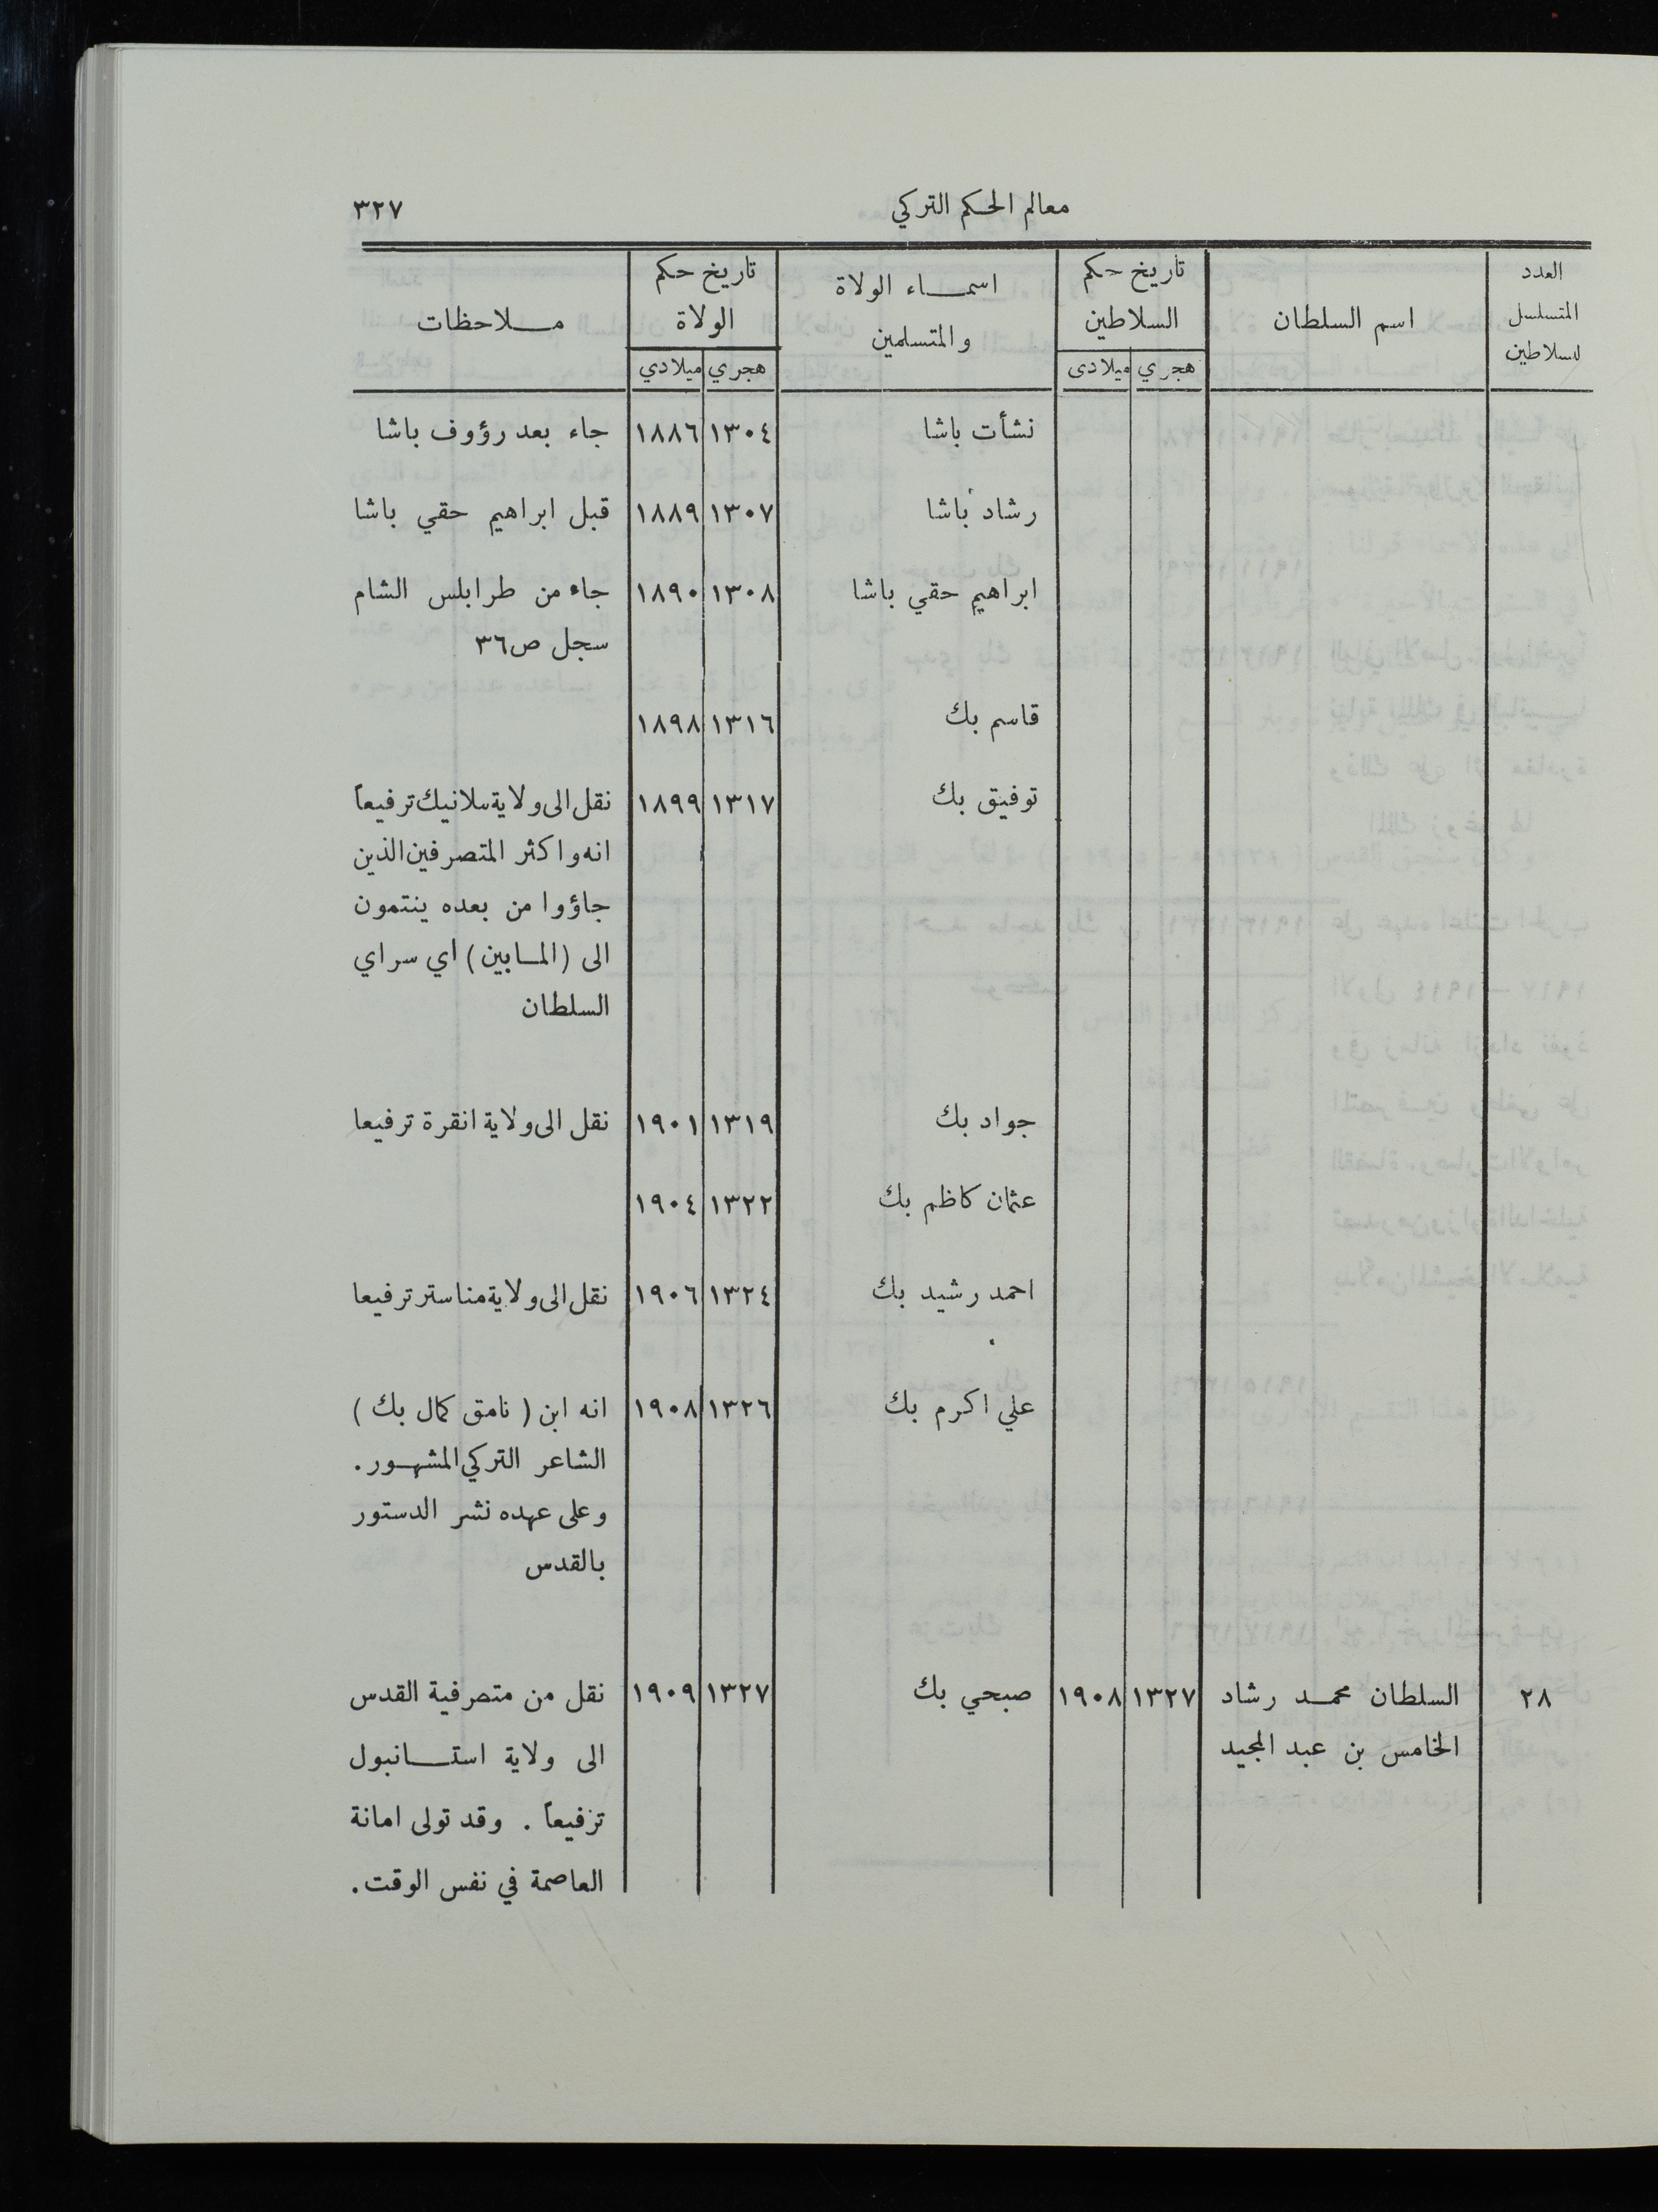 معالم الحكم التركي
٣٢٧
العدد المتسلسل لسلاطين | اسم السلطان | تاريخ حكم السلاطين | اسمـاء الولاة والمتسلمين | تاريخ حكم الولاة | مـلاحظات
هجري | ميلادى | هجري | ميلادي
نشأت باشا | ١٣٠٤ | ١٨٨٦ | جاء بعد رؤوف باشا
رشاد باشا | ١٣٠٧ | ١٨٨٩ | قبل ابراهيم حقي باشا
ابراهيم حقي باشا | ١٣٠٨ | ١٨٩٠ | جاء من طرابلس الشام
سجل ص٣٦
قاسم بك | ١٣١٦ | ١٨٩٨
توفيق بك | ١٣١٧ | ١٨٩٩ | نقل الى ولاية سلانيك ترفيعاً
انه واكثر المتصرفين الذين
جاؤوا من بعده ينتمون
الى (المـابين) اي سراي
السلطان
جواد بك | ١٣١٩ | ١٩٠١ | نقل الى ولاية انقرة ترفيعا
عثمان كاظم بك | ١٣٢٢ | ١٩٠٤
احمد رشيد بك | ١٣٢٤ | ١٩٠٦ | نقل الى ولاية مناستر ترفيعا
علي اكرم بك | ١٣٢٦ | ١٩٠٨ | انه ابن ( نامق كمال بك )
الشاعر التركي المشهـور.
وعلى عهده نشر الدستور
بالقدس
٢٨ | السلطان محمـد رشاد | ١٣٢٧ | ١٩٠٨ | صبحي بك | ١٣٢٧ | ١٩٠٩ | نقل من متصرفية القدس
الخامس بن عبد المجيد | الى ولاية استـانبول
تزفيعاً . وقد تولى امانة
العاصمة في نفس الوقت.